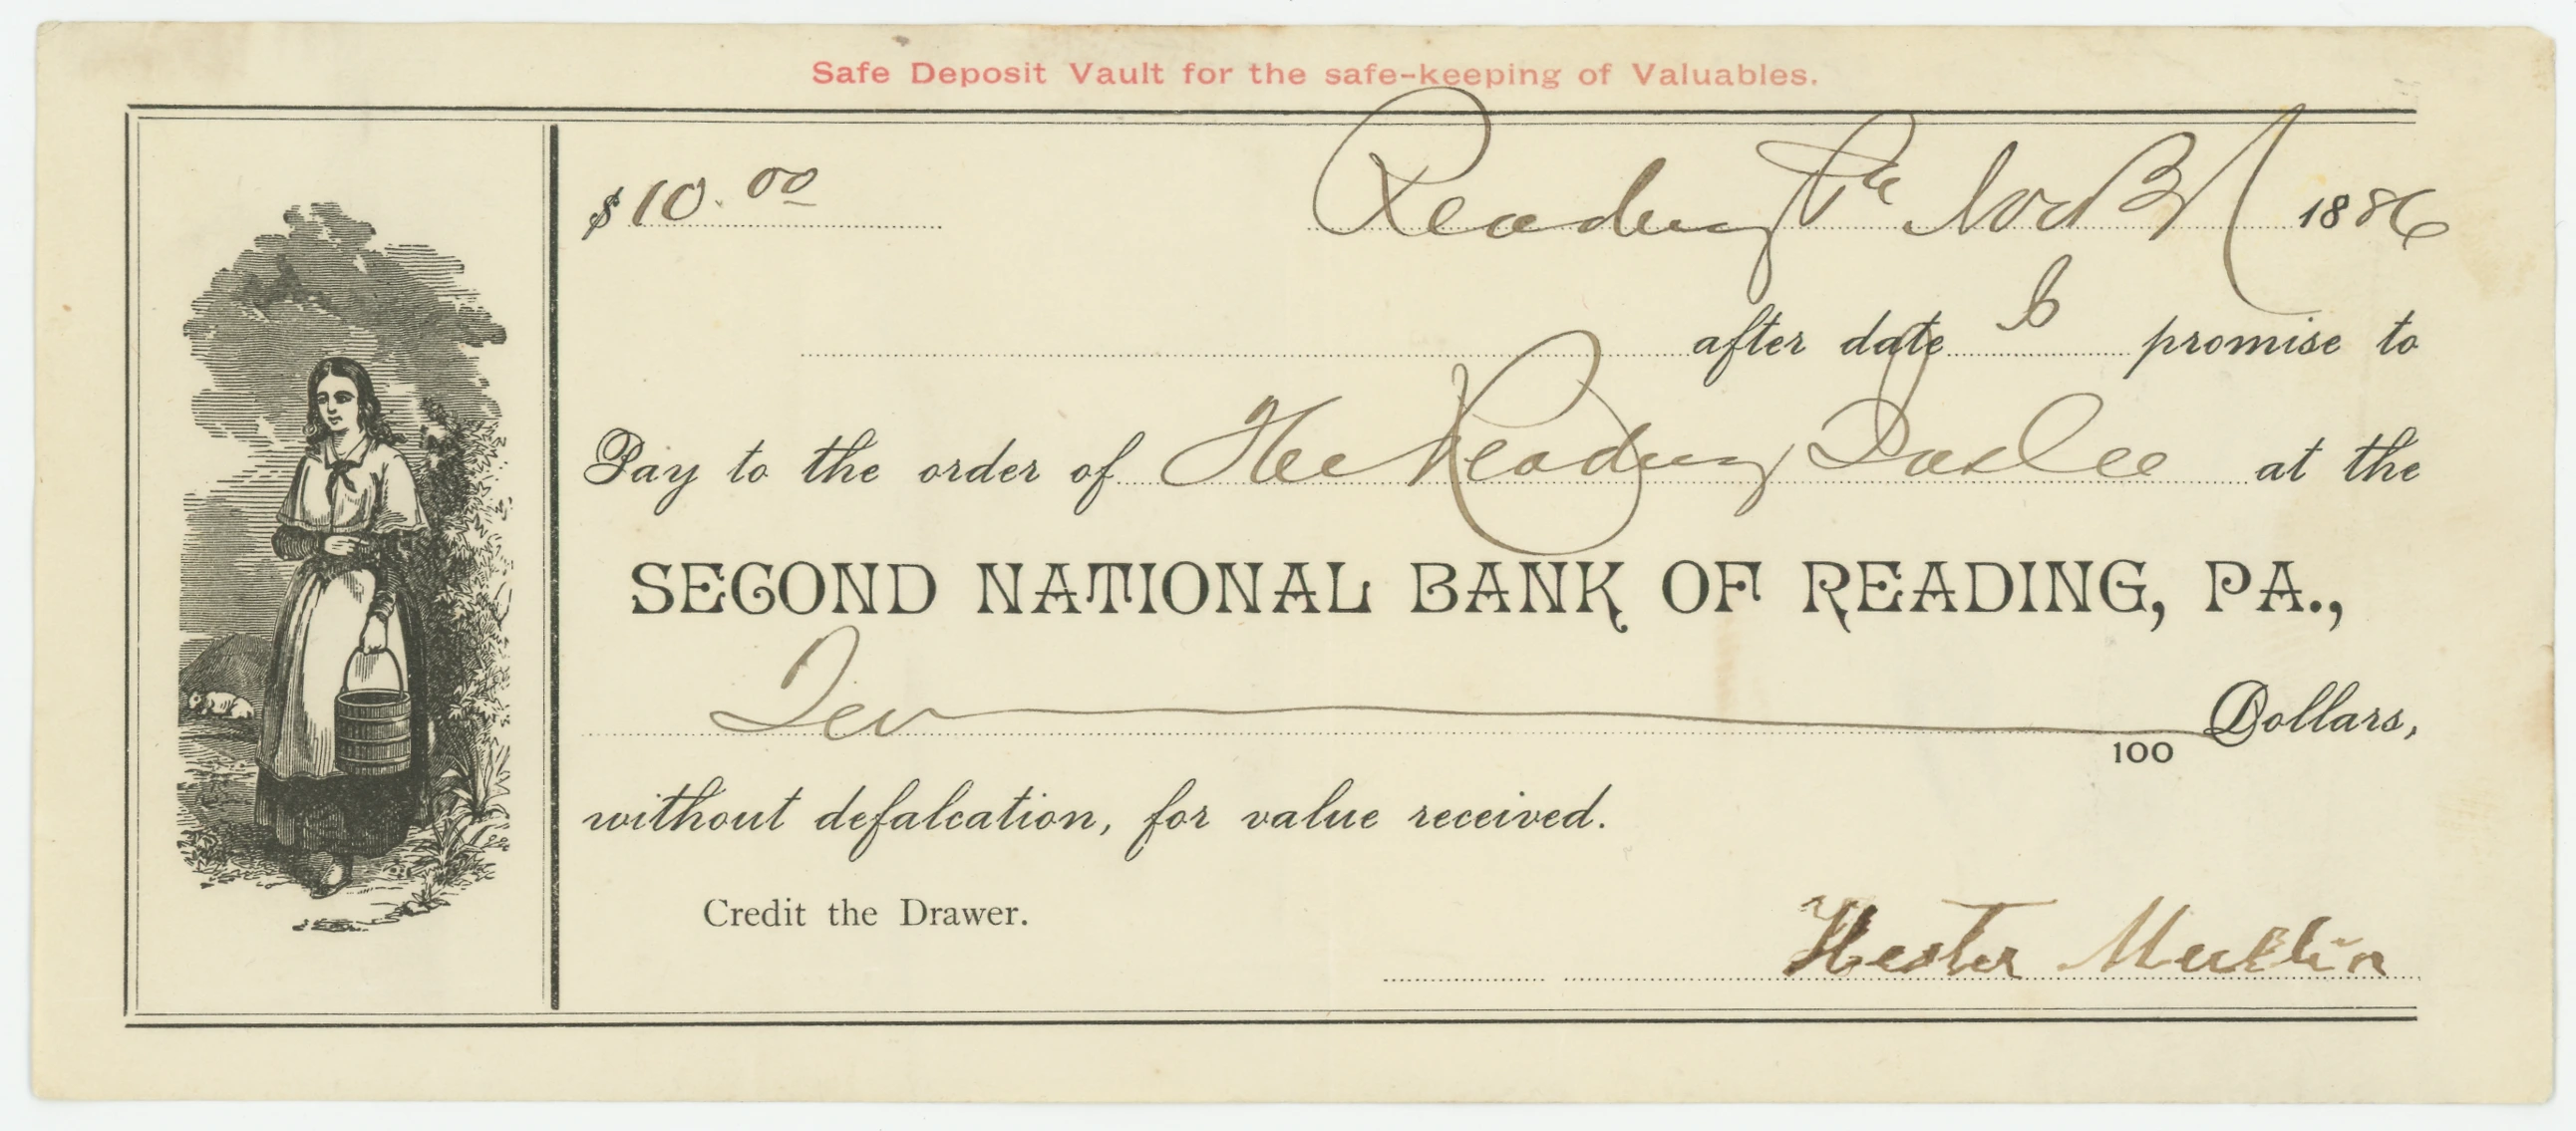 Safe Deposit Vault for the safe-keeping of Valuables.
$ 10.00 Reading Pa 1886
after date promise to
Pay to the order of The Reading at the
SECOND NATIONAL BANK OF READING, PA.,
Ten Dollars,
100
without defalcation, for value received.
Credit the Drawer.
Hester